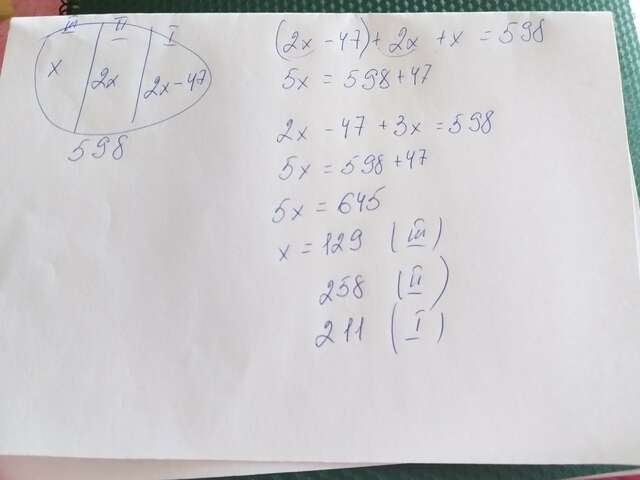 III II I
x 2x 2x-47
598
(2x-47)+2x+x=598
5x=598+47
2x-47+3x=598
5x=598+47
5x=645
x=129 (III)
258 (II)
211 (I)